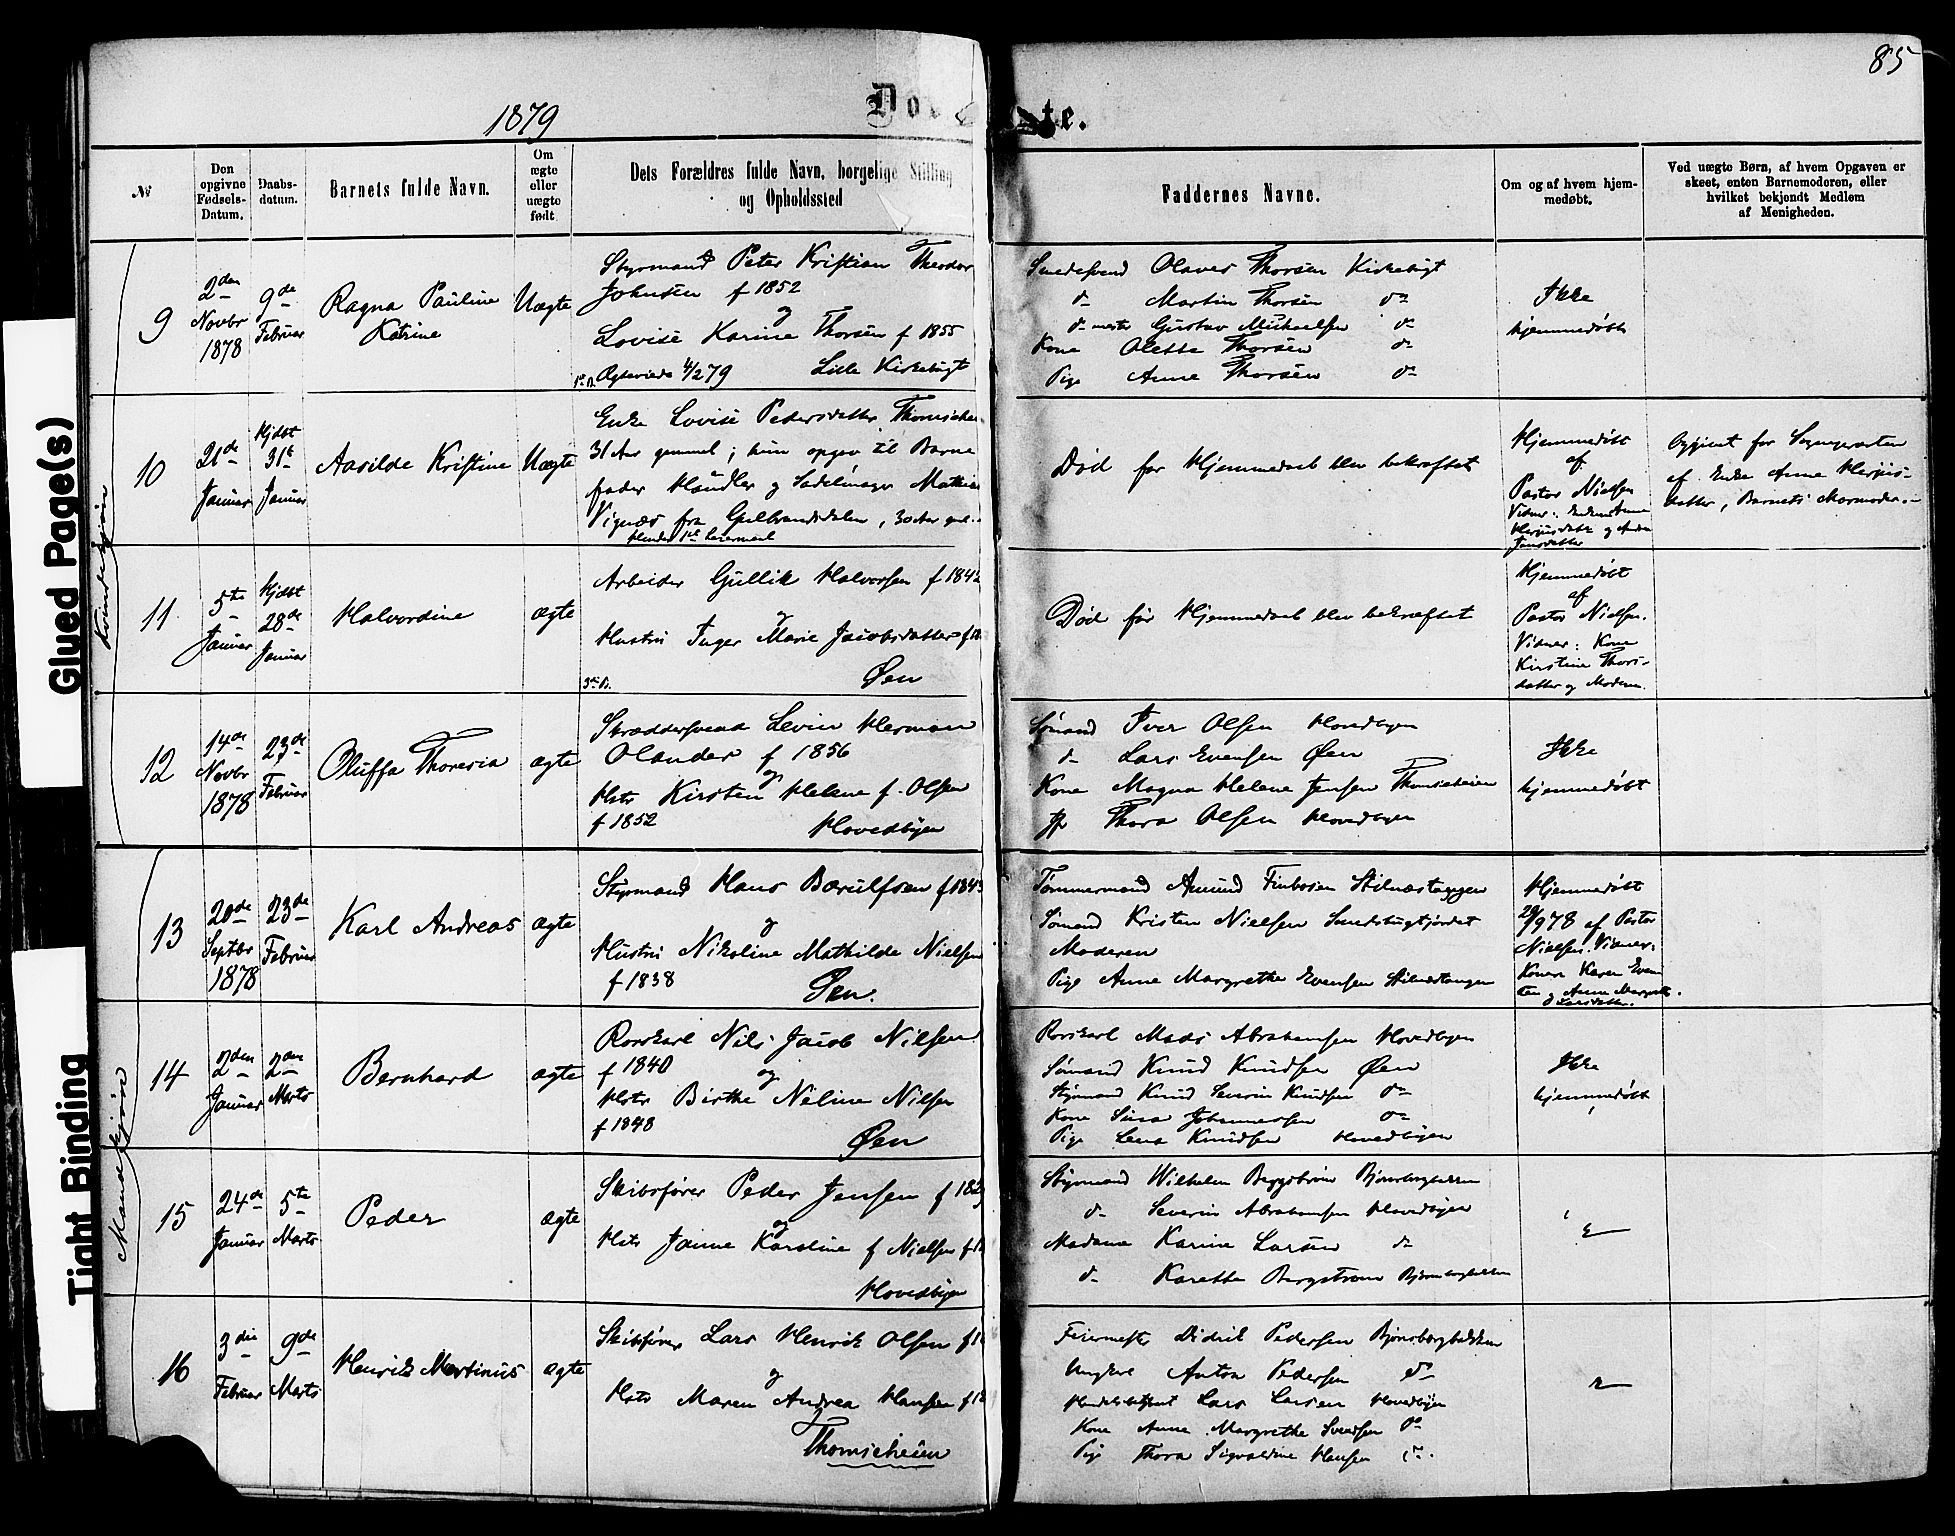 85
1879
Døbte.
№
Den opgivne Fødsels-Datum.
Daabs-datum.
Barnets fulde Navn.
Om ægte eller uægte født.
Dets Forældres fulde Navn, borgelige Stilling og Opholdssted
Faddernes Navne.
Om og af hvem hjem-medøbt.
Ved uægte Børn, af hvem Opgaven er skeet, enten Barnemoderen, eller hvilket bekjendt Medlem af Menigheden.
Glued Page(s)
Tight Binding
Kvindekjøn
9
2den Novbr 1878
9de Februar
Ragna Pauline
Katrine
Uægte
Styrmand Peter Kristian Theodor
Johnsen f 1852
og
Lovise Karine Thorsen f 1855
Ægteviede 4/2 79 Lille Kirkebugt
Smedesvend Olaves Thorsen Kirkebugt
do Martin Thorsen do
do mester Gustav Michaelsen do
Kone Olette Thorsen do
Pige Anne Thorsen do
Ikke
hjemmedøbt
10
21de Januar
Hjdbt 31te Januar
Aasilde Kristine
Uægte
Enke Lovise Pedersdatter Thomsehei
31 Aar gammel; hun opgev til Barne
fader Handler og Sadelmager Mathias
Vignæs fra Gulbrandsdalen, 30 Aar gml.
Hendes 1ste Leiermaal
Død før Hjemmedaab blev bekræftet
Hjemmedøbt
af
Pastor Nielsen
Vidner: Enken Anne
Opgivet for Sognepræsten
af Enke Anne Herjus-
datter, Barnets Mormoder.-
11
5te Januar
Hjdbt 28de Januar
Halvordine
ægte
Arbeider Gullik Halvorsen f 1842
og
Hustru Inger Marie Jacobsdatter f 18
3die B. Øen
Død før Hjemmedaab blev bekræftet
Hjemmedøbt
af
Pastor Nielsen.
Vidner: Kone
Kirstine Thors-
datter og Moderen.
12
14de Novbr 1878
23de Februar
Oluffa Thoresia
ægte
Skræddersvend Levin Herman
Olander f 1856
og
Hstr Kirsten Helene f. Olsen
f 1852 Hovedbyen
Sømand Iver Olsen Hovedbyen
do Lars Evensen Øen
Kone Magna Helene Jensen Thomseheien
Thora Olsen Hovedbyen
Ikke
hjemmedøbt
Mandkjøn
13
20de Septbr 1878
23de Februar
Karl Andreas
ægte
Styrmand Hans Bærulfsen f 1843
og
Hustru Nikoline Mathilde Nielsen
f 1838 Øen.
Tømmermand Amund Finbosen Stilnæstangen
Sømand Kristen Nielsen
Moderen
Pige Anne Margrethe Evensen Stilnæstangen
Hjemmedøbt
29/9 78 af Pastor
Nielsen. Vidner:
Konen Karen Even
sen og Anne Margreth.
Larsdatter.
14
2den Januar
2den Marts
Bernhard
ægte
Rorskarl Nils Jacob Nilsen
f 1840
og
Hstr Birthe Neline Nilsen
f 1848
Øen
Rorskarl Mads Abrahamsen Hovedbyen
Sømand Knud Knudsen Øen
Styrmand Knud Severin Knudsen do
Kone Sina Johannessen do
Pige Lena Knudsen Hovedbyen
Ikke
hjemmedøbt
15
24de Januar
5te Marts
Peder
ægte
Skibsfører Peder Jensen f 183
og
Hstr Janne Karoline f Nielsen f 1
Hovedbyen
Styrmand Wilhelm Bergstrøm Bjønsbergbakken
do Severin Abrahamsen Hovedbyen
Madame Karine Larsen do
do Karette Bergstrøm Bjønsbergbakken
16
3die Februar
9de Marts
Henrik Martinus
ægte
Skibsfører Lars Henrik Olsen f 1
og
Hstr Maren Andrea Hansen f 1
Thomseheien
Feiermester Didrik Pedersen Bjønsbergbakken
Ungkarl Anton Pedersen do
Lars Larsen Hovedbyen
Kone Anne Margrethe Svendsen do
Pige Thora Sigvaldine Hansen do